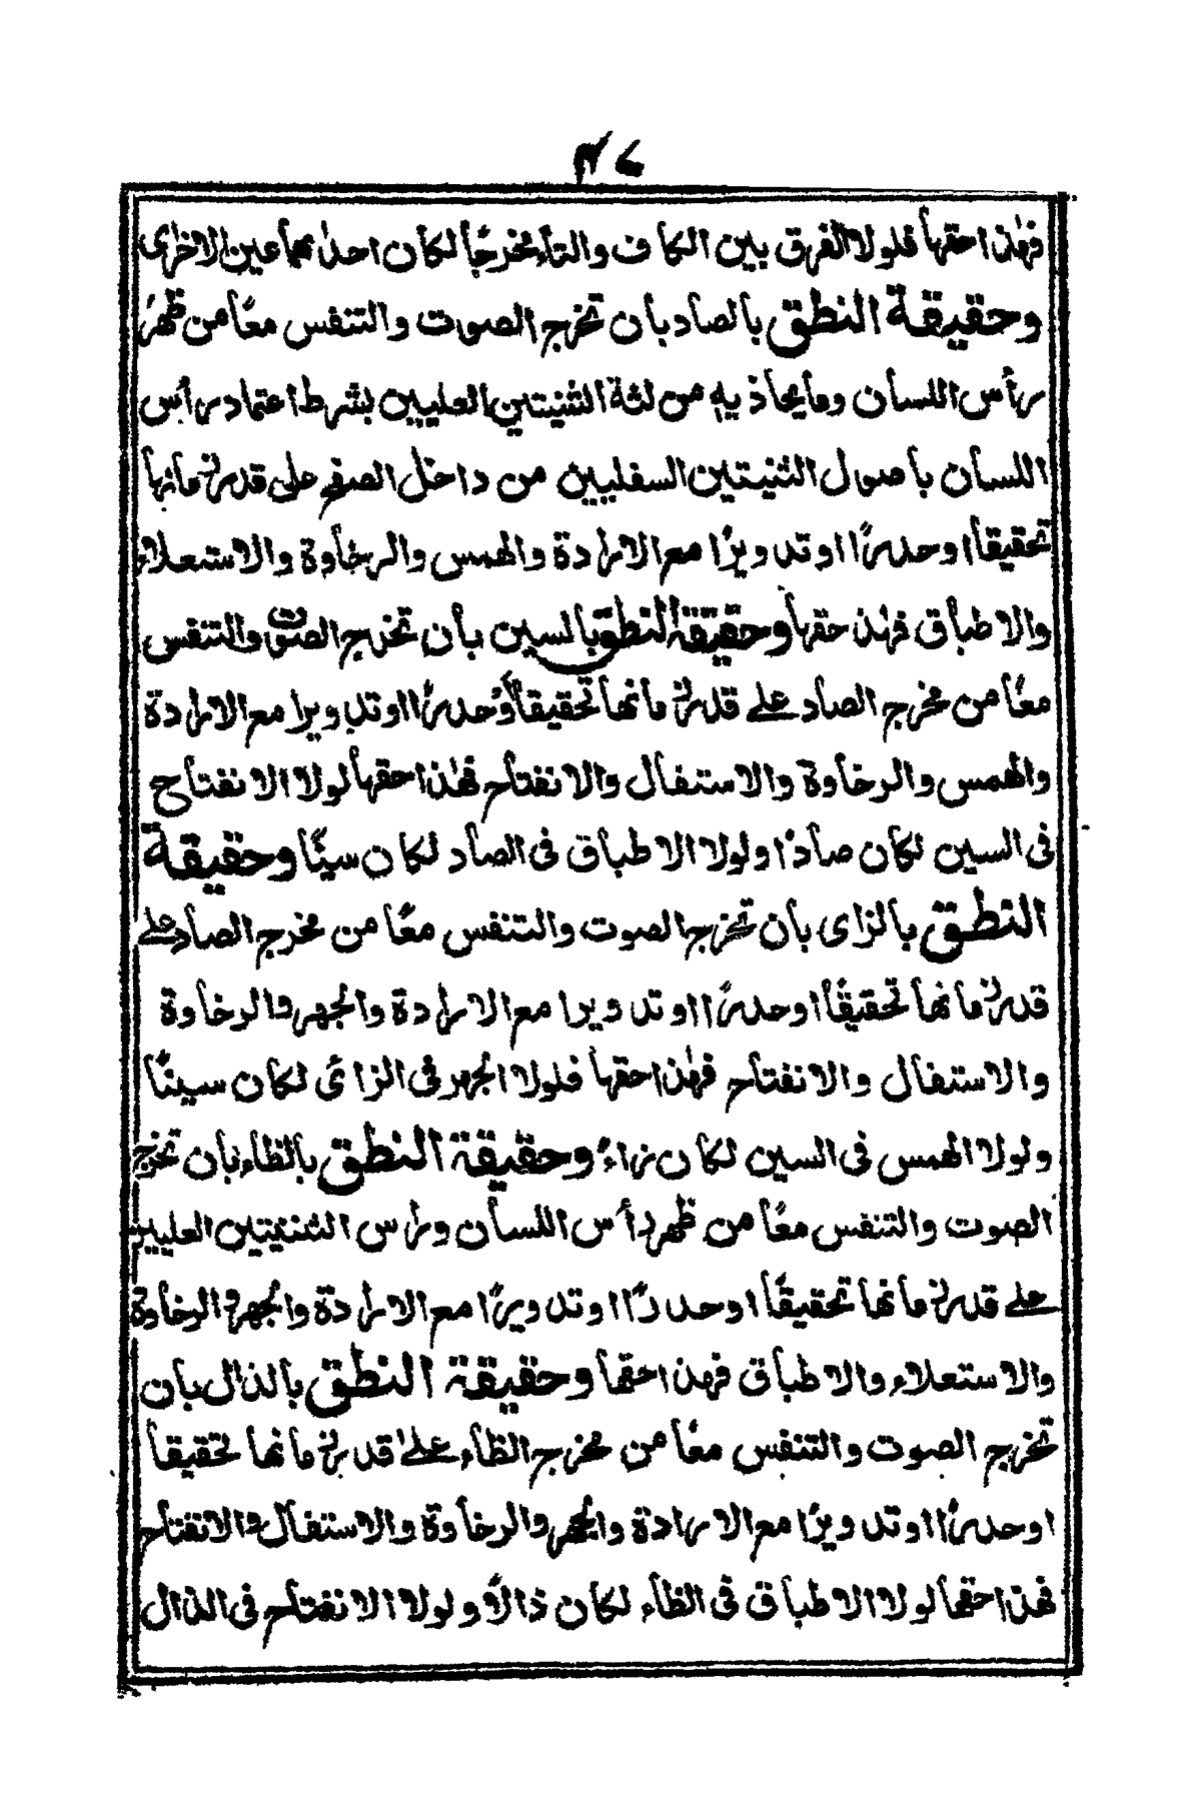 ٤٧
فهذا حقها فلولا الفرق بين الكاف والتاء مخرجًا لكان احدٰهما عين الاخرٰى
وحقيقة النطق بالصاد بان تخرج الصوت والتنفس معًا من ظهر
رأس اللسان وما يحاذيه من لثة الثنيتين العليين بشرط اعتماد رأس
اللسان باصول الثنيتين السفليين من داخل الصفح على قدر زمانها
تحقيقا او حدرًا او تدويرًا مع الارادة والهمس والرخاوة والاستعلاء
والاطباق فهٰذا حقها وحقيقة النطق بالسين بان تخرج الصوت والتنفس
معًا من مخرج الصاد على قدر زمانها تحقيقًا او حدرًا او تدويرا مع الارادة
والهمس والرخاوة والاستفال والانفتاح فهٰذا حقها لولا الانفتاح
فى السين لكان صادًا ولولا الاطباق فى الصاد لكان سينًا وحقيقة
النطق بالزاى بان تخرج الصوت والتنفس معًا من مخرج الصاد على
قدر زمانها تحقيقًا او حدرًا او تدويرا مع الارادة والجهر والرخاوة
والاستفال والانفتاح فهٰذا حقها فلولا الجهر فى الزاى لكان سينًا
ولولا الهمس فى السين لكان زاءً وحقيقة النطق بالظاء بان تخرج
الصوت والتنفس معًا من ظهر رأس اللسان وراس الثنيتين العليين
على قدر زمانها تحقيقًا او حدرًا او تدويرًا مع الارادة والجهر والرخاوة
والاستعلاء والاطباق فهذا حقها وحقيقة النطق بالذال بان
تخرج الصوت والتنفس معًا من مخرج الظاء علىٰ قدر زمانها تحقيقا
او حدرًا او تدويرًا مع الارادة والجهر والرخاوة والاستفال والانفتاح
فهذا حقها لولا الاطباق فى الظاء لكان ذالًا ولولا الانفتاح فى الذال